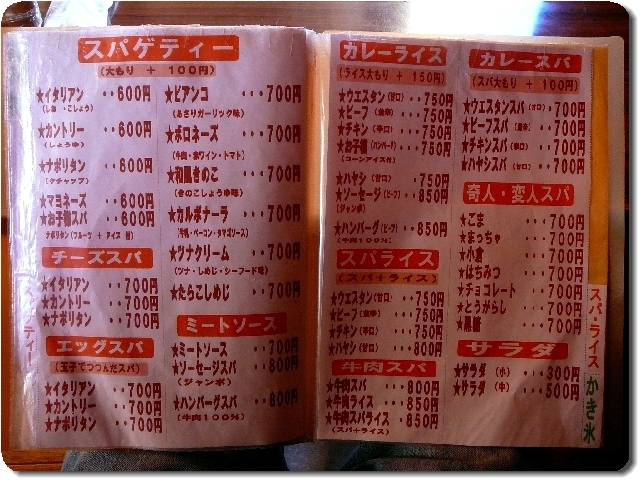 スパゲティー
(大もり + 100円)
★イタリアン ‥600円
(しお・こしょう)
★カントリー ‥600円
(しょうゆ)
★ナポリタン ‥600円
(ケチャップ)
★マヨネーズ ‥600円
★お子様スパ ‥650円
ナポリタン(フルーツ + アイス 付)
チーズスパ
★イタリアン ‥700円
★カントリー ‥700円
★ナポリタン ‥700円
エッグスパ
(玉子でつつんだスパ)
★イタリアン ‥700円
★カントリー ‥700円
★ナポリタン ‥700円
★ビアンコ ‥‥700円
(あさりガーリック味)
★ボロネーズ ‥‥700円
(牛肉・赤ワイン・トマト)
★和風きのこ ‥‥700円
(きのこしょうゆ味)
★カルボナーラ ‥700円
(牛乳・ベーコン・タマゴソース)
★ツナクリーム ‥700円
(ツナ・しめじ・シーフード味)
★たらこしめじ ‥700円
ミートソース
★ミートソース ‥700円
★ソーセージスパ ‥800円
(ジャンボ)
★ハンバーグスパ ‥800円
(牛肉100%)
カレーライス
(ライス大もり + 150円)
★ウエスタン(甘口) ‥750円
★ビーフ(激辛) ‥750円
★チキン(辛口) ‥750円
★お子様(ハンバーグ) ‥750円
(コーンアイス付)
★ハヤシ(甘口) ‥750円
★ソーセージ(ビーフ) ‥850円
(ジャンボ)
★ハンバーグ(ビーフ) ‥850円
(牛肉100%)
スパライス
(スパ+ライス)
★ウエスタン(甘口) ‥850円
★ビーフ(激辛) ‥850円
★チキン(辛口) ‥850円
★ハヤシ(甘口) ‥800円
牛肉スパ
★牛肉スパ ‥800円
★牛肉ライス ‥850円
★牛肉スパライス ‥850円
(スパ+ライス)
カレースパ
(スパ大もり + 100円)
★ウエスタンスパ(甘口) ‥700円
★ビーフスパ(激辛) ‥700円
★チキンスパ(辛口) ‥700円
★ハヤシスパ(甘口) ‥700円
奇人・変人スパ
★ごま ‥‥700円
★まっちゃ ‥‥700円
★小倉 ‥‥700円
★はちみつ ‥‥700円
★チョコレート ‥700円
★とうがらし ‥700円
★黒糖 ‥700円
サラダ
★サラダ (小) ‥300円
★サラダ (中) ‥500円
スパ・ライス
かき氷
ティー